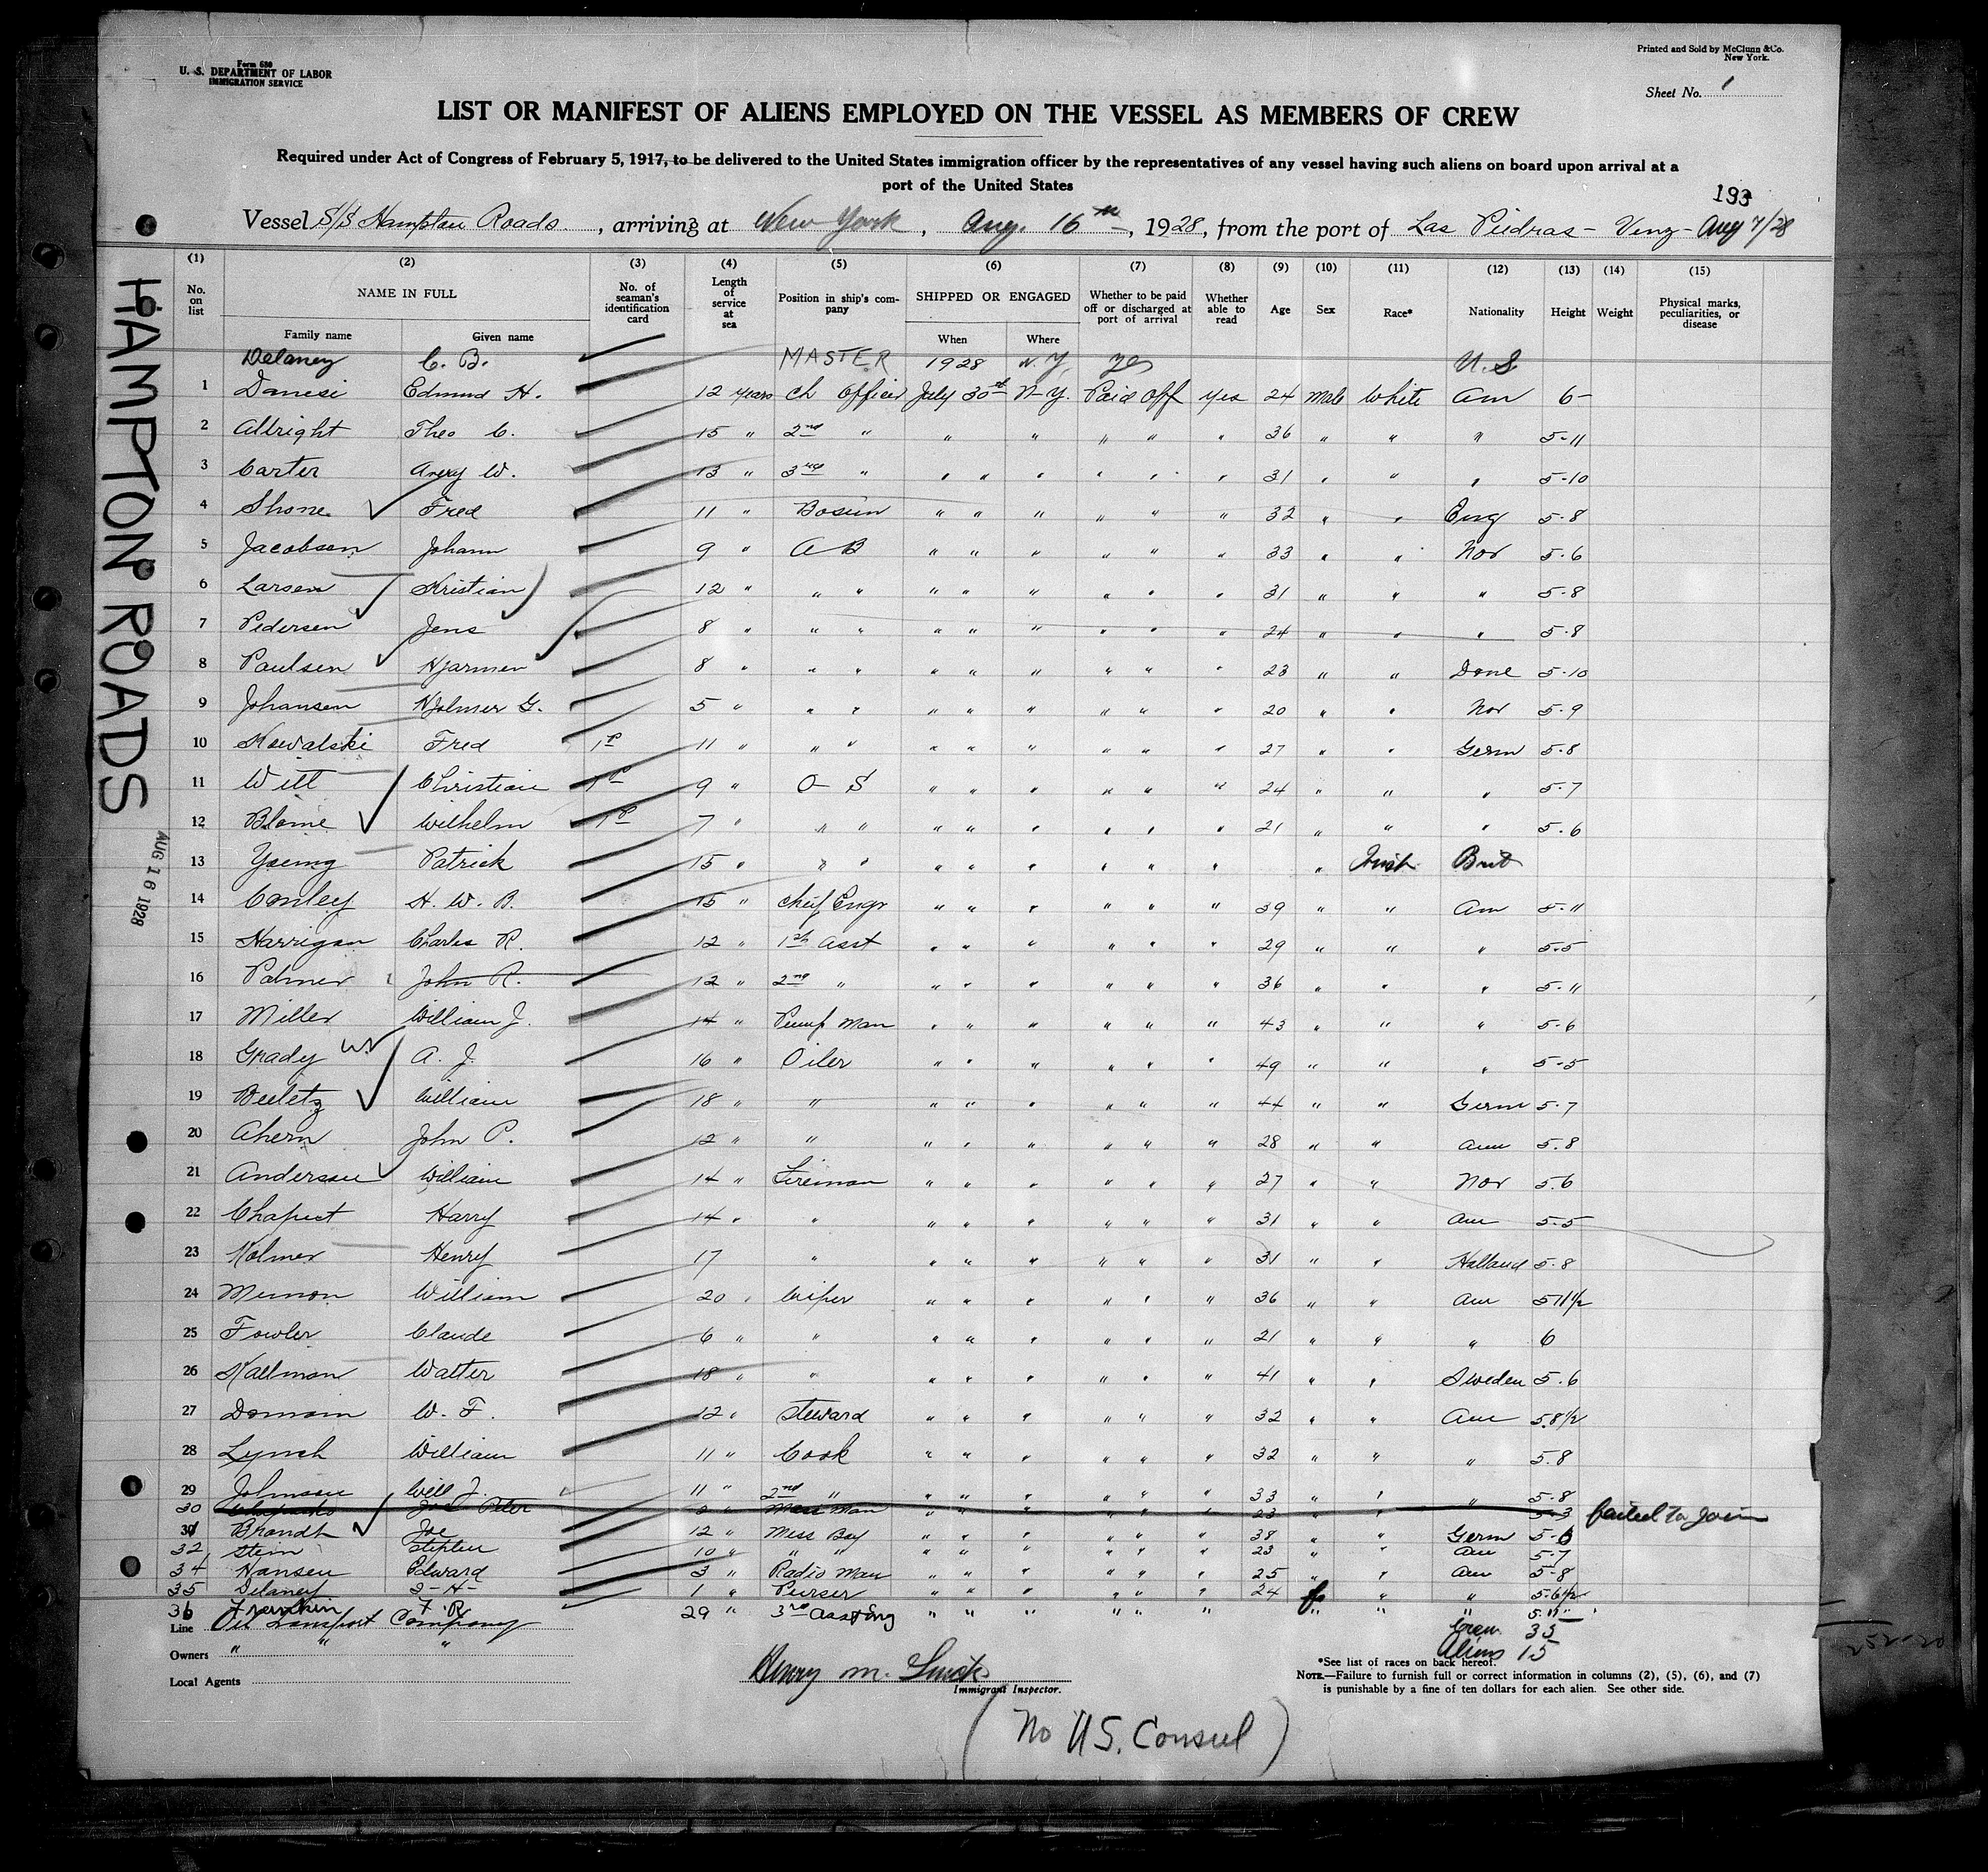 Form 680
U. S. DEPARTMENT OF LABOR
IMMIGRATION SERVICE
Printed and Sold by McClunn & Co.
New York.
Sheet No. 1
LIST OR MANIFEST OF ALIENS EMPLOYED ON THE VESSEL AS MEMBERS OF CREW
Required under Act of Congress of February 5, 1917, to be delivered to the United States immigration officer by the representatives of any vessel having such aliens on board upon arrival at a
port of the United States
193
Vessel S/S Hampton Roads, arriving at New York, Aug. 16th, 1928, from the port of Las Piedras - Venz - Aug 7/28
HAMPTON ROADS
AUG 16 1928
(1) (2) (3) (4) (5) (6) (7) (8) (9) (10) (11) (12) (13) (14) (15)
No. on list NAME IN FULL Family name Given name No. of seaman's identification card Length of service at sea Position in ship's company SHIPPED OR ENGAGED When Where Whether to be paid off or discharged at port of arrival Whether able to read Age Sex Race* Nationality Height Weight Physical marks, peculiarities, or disease
Delaney C. B. MASTER 1928 N.Y. yes U.S
1 Danesi Edmund H. 12 years Ch Officer July 30th N-Y. Paid off yes 24 male White Am 6-
2 Albright Theo C. 15 " 2nd " " " " " " 36 " " " 5-11
3 Carter Avery W. 13 " 3rd " " " " " " " 31 " " " 5-10
4 Shone Fred 11 " Bosun " " " " " " 32 " " Eng 5-8
5 Jacobsen Johann 9 " A B " " " " " " 33 " " Nor 5-6
6 Larsen Kristian 12 " " " " " " " " " 31 " " " 5-8
7 Pedersen Jens 8 " " " " " " " " " 24 " " " 5-8
8 Paulsen Hjarmen 8 " " " " " " " " " 23 " " Dane 5-10
9 Johansen Hjolmer G. 5 " " " " " " " " " 20 " " Nor 5-9
10 Kowalski Fred 1P 11 " " " " " " " " " 27 " " Germ 5-8
11 Witt Christian 1P 9 " O S " " " " " " 24 " " " 5-7
12 Blome Wilhelm 1P 7 " " " " " " " " " 21 " " " 5-6
13 Young Patrick 15 " " " " " " " " " " Irish Brit
14 Conley H. W. B. 15 " Cheif Engr " " " " " " 39 " " Am 5-11
15 Harrigan Charles R. 12 " 1st Asst " " " " " " 29 " " " 5-5
16 Palmer John R. 12 " 2nd " " " " " " " 36 " " " 5-11
17 Miller William J. 14 " Pump Man " " " " " " 43 " " " 5-6
18 Grady A. J. 16 " Oiler " " " " " " 49 " " " 5-5
19 Beeletz William 18 " " " " " " " " 44 " " Germ 5-7
20 Ahern John P. 12 " " " " " " " " 28 " " Am 5-8
21 Anderson William 14 " Fireman " " " " " " 27 " " Nor 5-6
22 Harry 14 " " " " " " " " 31 " " Am 5-5
23 Kolmer Henry 17 " " " " " " " 31 " " Holland 5-8
24 William 20 " Wiper " " " " " " 36 " " Am 5 11 1/2
25 Fowler Claude 6 " " " " " " " " 21 " " " 6
26 Kallman Walter 18 " " " " " " " " 41 " " Sweden 5-6
27 W. F. 12 " Steward " " " " " " 32 " " Am 5.8 1/2
28 Lynch William 11 " Cook " " " " " " 32 " " " 5.8
29 Johnson Will J. 11 " 2nd " " " " " " " 33 " " " 5-8
30 Peter Mess Man " " " " " " 23 " " 5-3 failed to join
31 Brandt Joe 12 " Mess Boy " " " " " " 38 " " Germ 5-6
32 Stein Stephen 10 " " " " " " " " " 23 " " Am 5-7
34 Hansen Edward 3 " Radio Man " " " " " " 25 " " Am 5-8
35 Delaney 1 " Purser " " " " " " 24 f " " 5-6 1/2
36 F. R. 29 " 3rd Asst Eng " " " " " " " " " 5-11
Line Oil Transport Company
Owners " " "
Local Agents
Crew 35
Aliens 15
Henry M.
Immigrant Inspector.
*See list of races on back hereof.
NOTE.—Failure to furnish full or correct information in columns (2), (5), (6), and (7)
is punishable by a fine of ten dollars for each alien. See other side.
(No U.S. Consul)